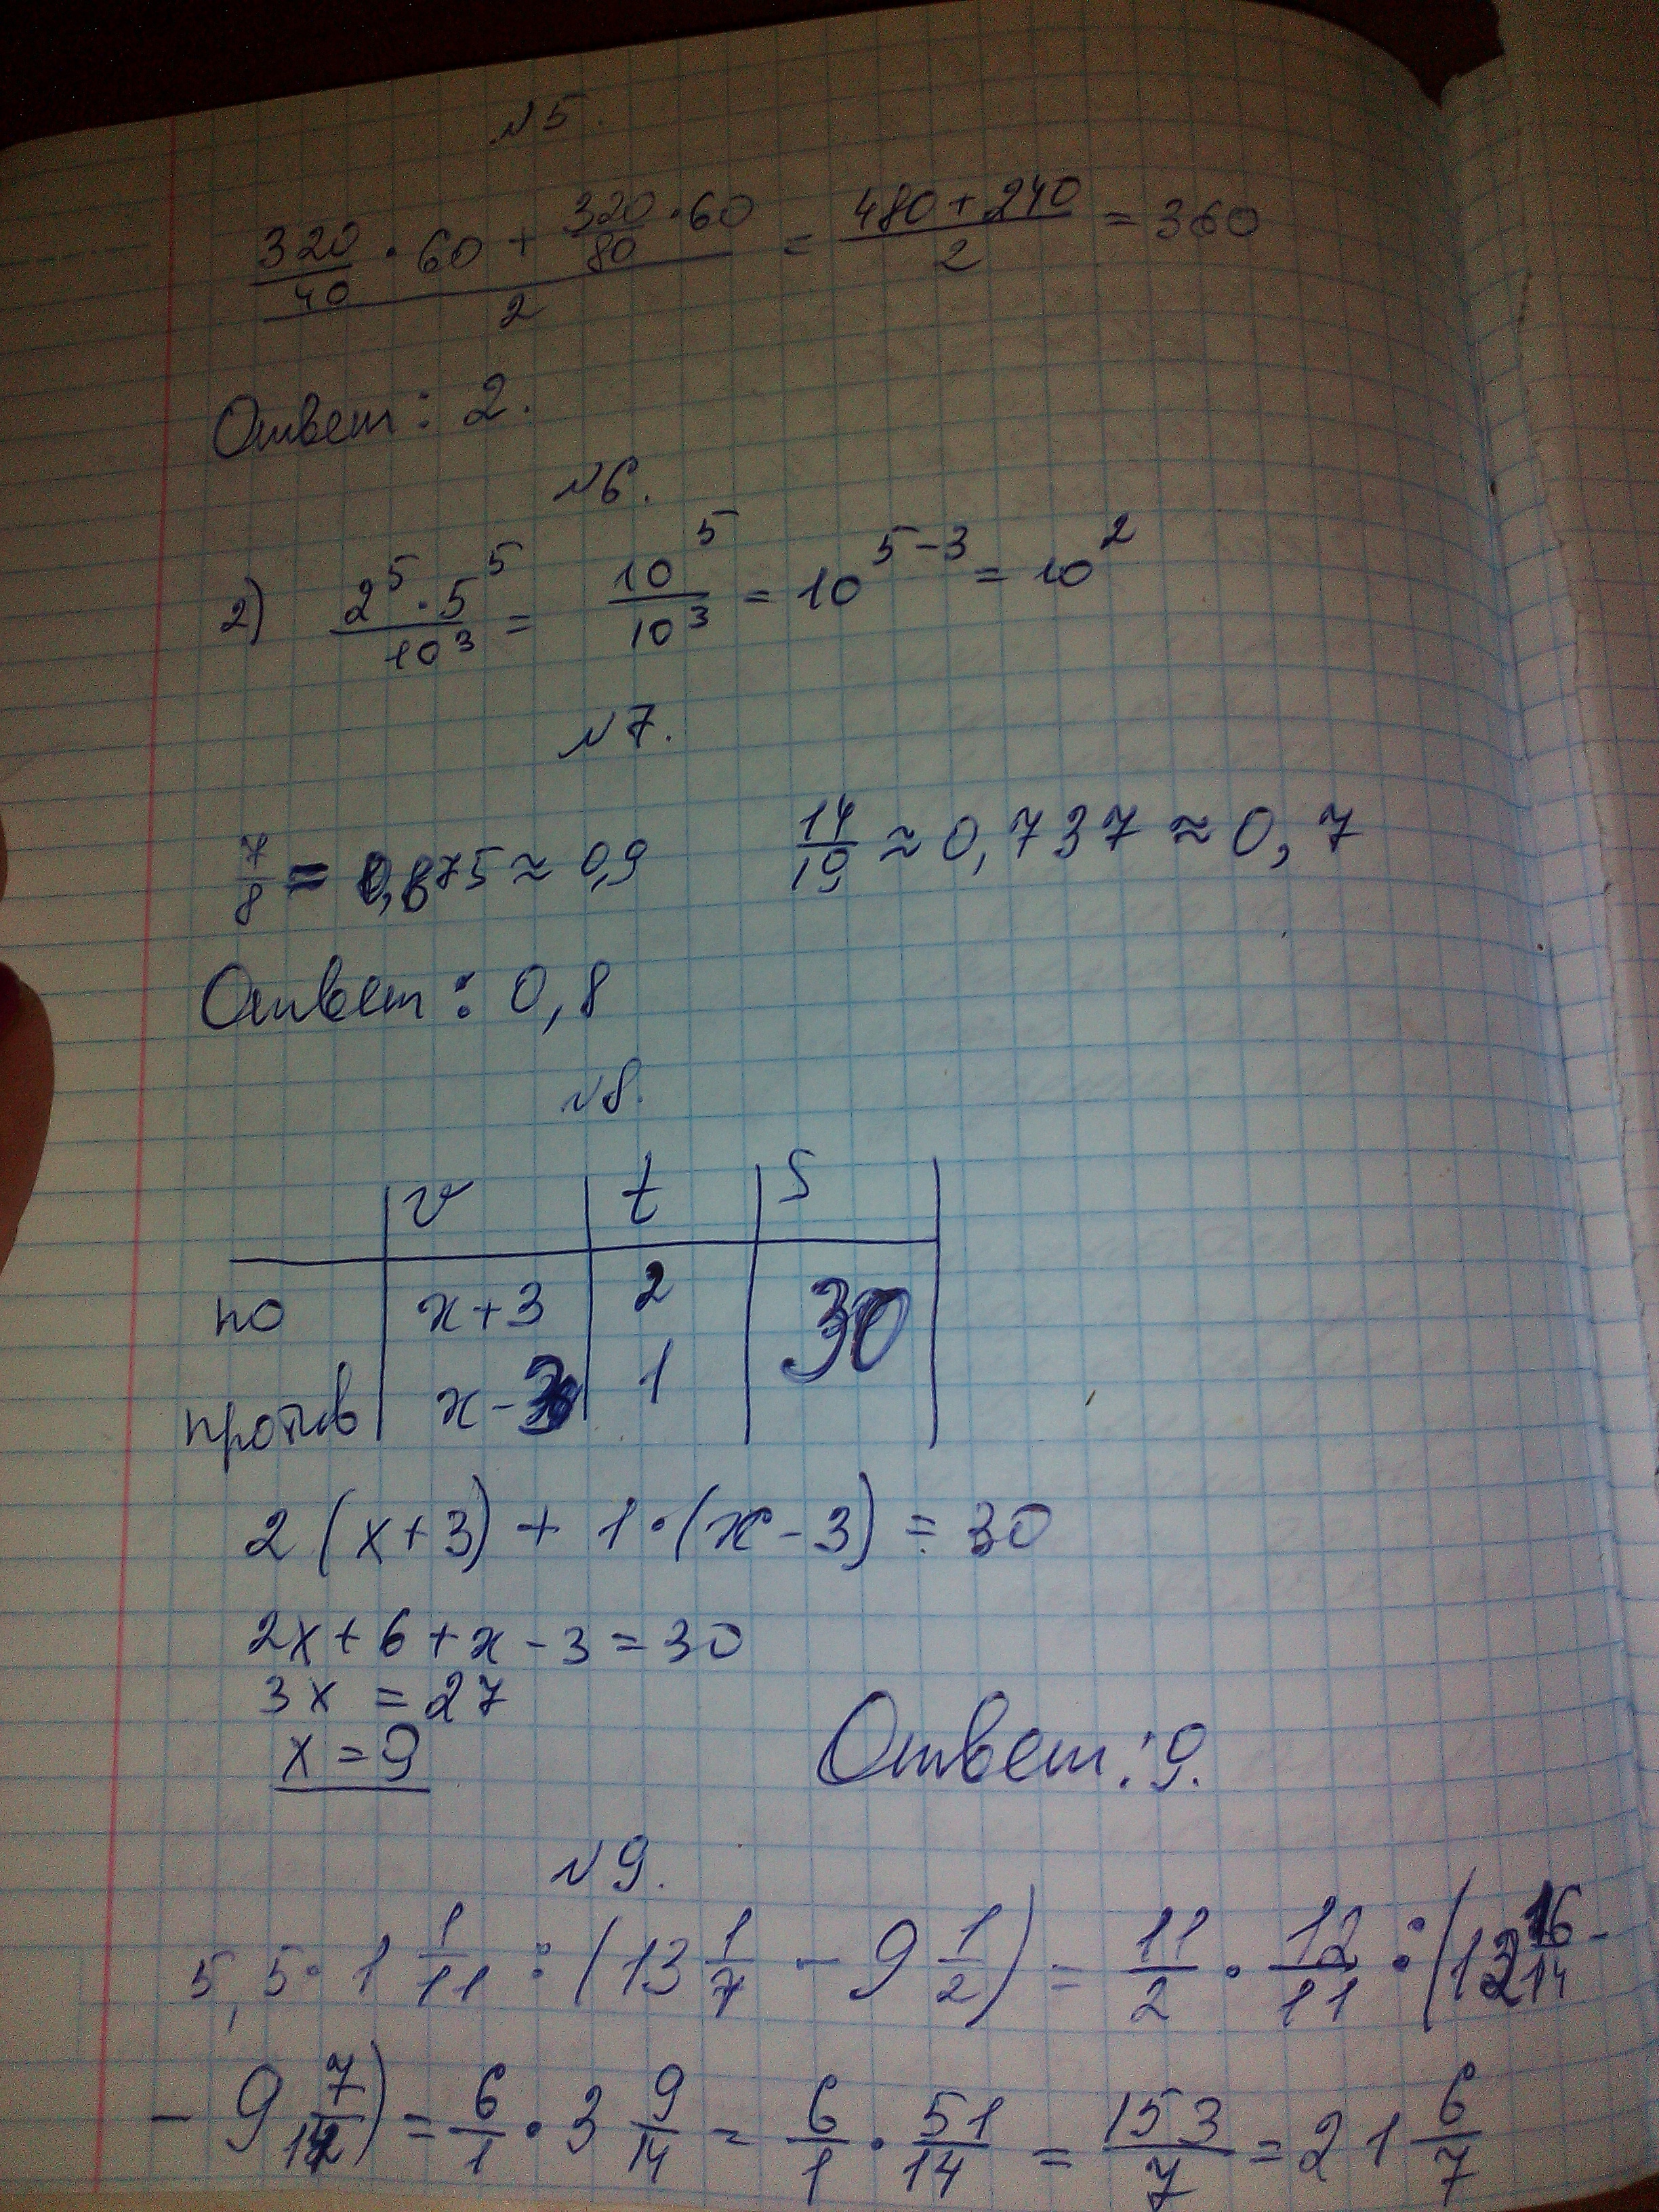 №5.
320/40 · 60 + 320/80 · 60 / 2 = 480+240 / 2 = 360
Ответ: 2.
№6.
2) 2^5 · 5^5 / 10^3 = 10^5 / 10^3 = 10^(5-3) = 10^2
№7.
7/8 = 0,875 ≈ 0,9 14/19 ≈ 0,737 ≈ 0,7
Ответ: 0,8
№8.
v t S
по x+3 2 30
против x-3 1
2(x+3) + 1·(x-3) = 30
2x+6+x-3=30
3x = 27
x = 9
Ответ: 9.
№9.
5,5 · 1 1/11 : (13 1/7 - 9 1/2) = 11/2 · 12/11 : (12 16/14 -
- 9 7/14) = 6/1 · 3 9/14 = 6/1 · 51/14 = 153/7 = 21 6/7